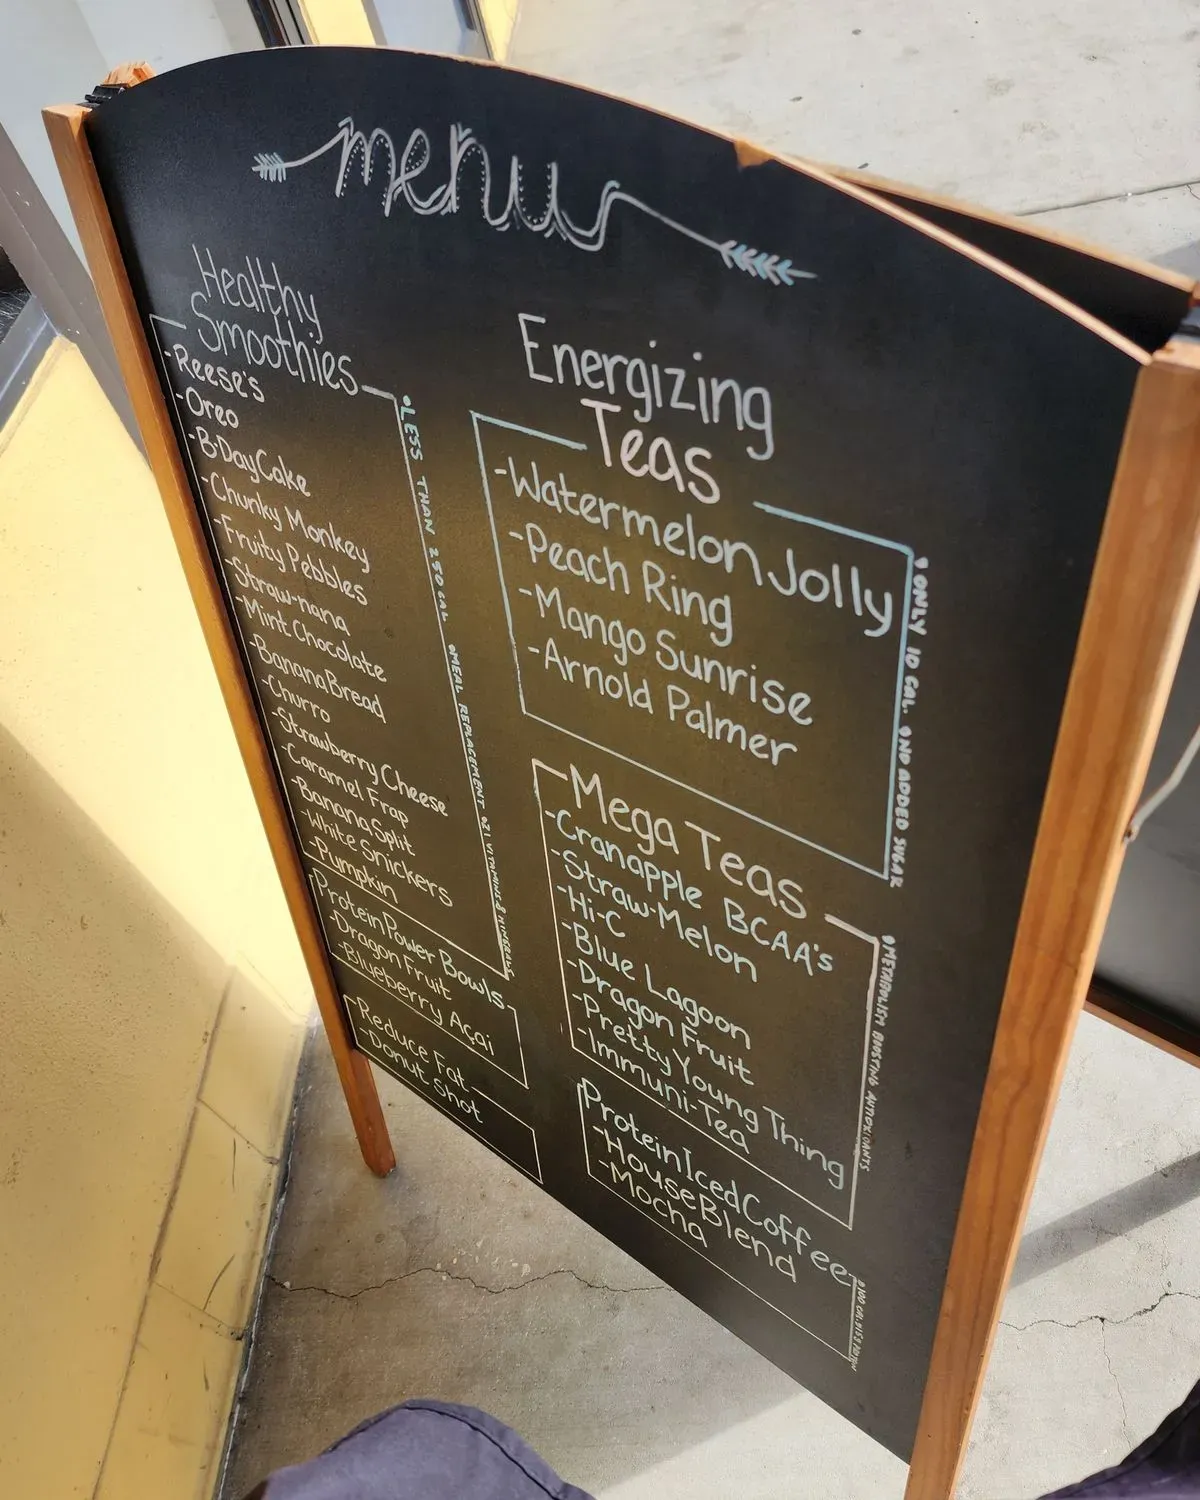 menu
Healthy
Smoothies
-Reese's
-Oreo
-B-Day Cake
-Chunky Monkey
-Fruity Pebbles
-Straw-nana
-Mint Chocolate
-Banana Bread
-Churro
-Strawberry Cheese
-Caramel Frap
-Banana Split
-White Snickers
-Pumpkin
LESS THAN 250 CAL MEAL REPLACEMENT 21 VITAMINS & MINERALS
Protein Power Bowls
-Dragon Fruit
-Blueberry Açai
Reduce Fat
-Donut Shot
Energizing
Teas
-Watermelon Jolly
-Peach Ring
-Mango Sunrise
-Arnold Palmer
ONLY 10 CAL. NO ADDED SUGAR
Mega Teas
-Cranapple BCAA's
-Straw-Melon
-Hi-C
-Blue Lagoon
-Dragon Fruit
-Pretty Young Thing
-Immuni-Tea
METABOLISM BOOSTING ANTIOXIDANTS
Protein Iced Coffee
-House Blend
-Mocha
100 CAL